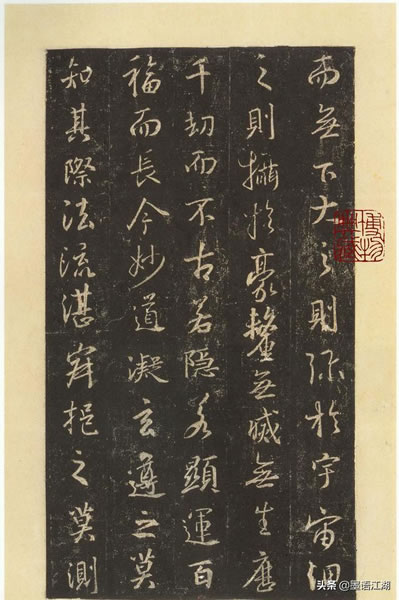 而無下大之則弥於宇宙細
之則攝於豪釐無滅無生歷
千劫而不古若隐若顯運百
福而長今妙道凝玄遵之莫
知其際法流湛寂挹之莫測
博物
头条 @墨语江湖